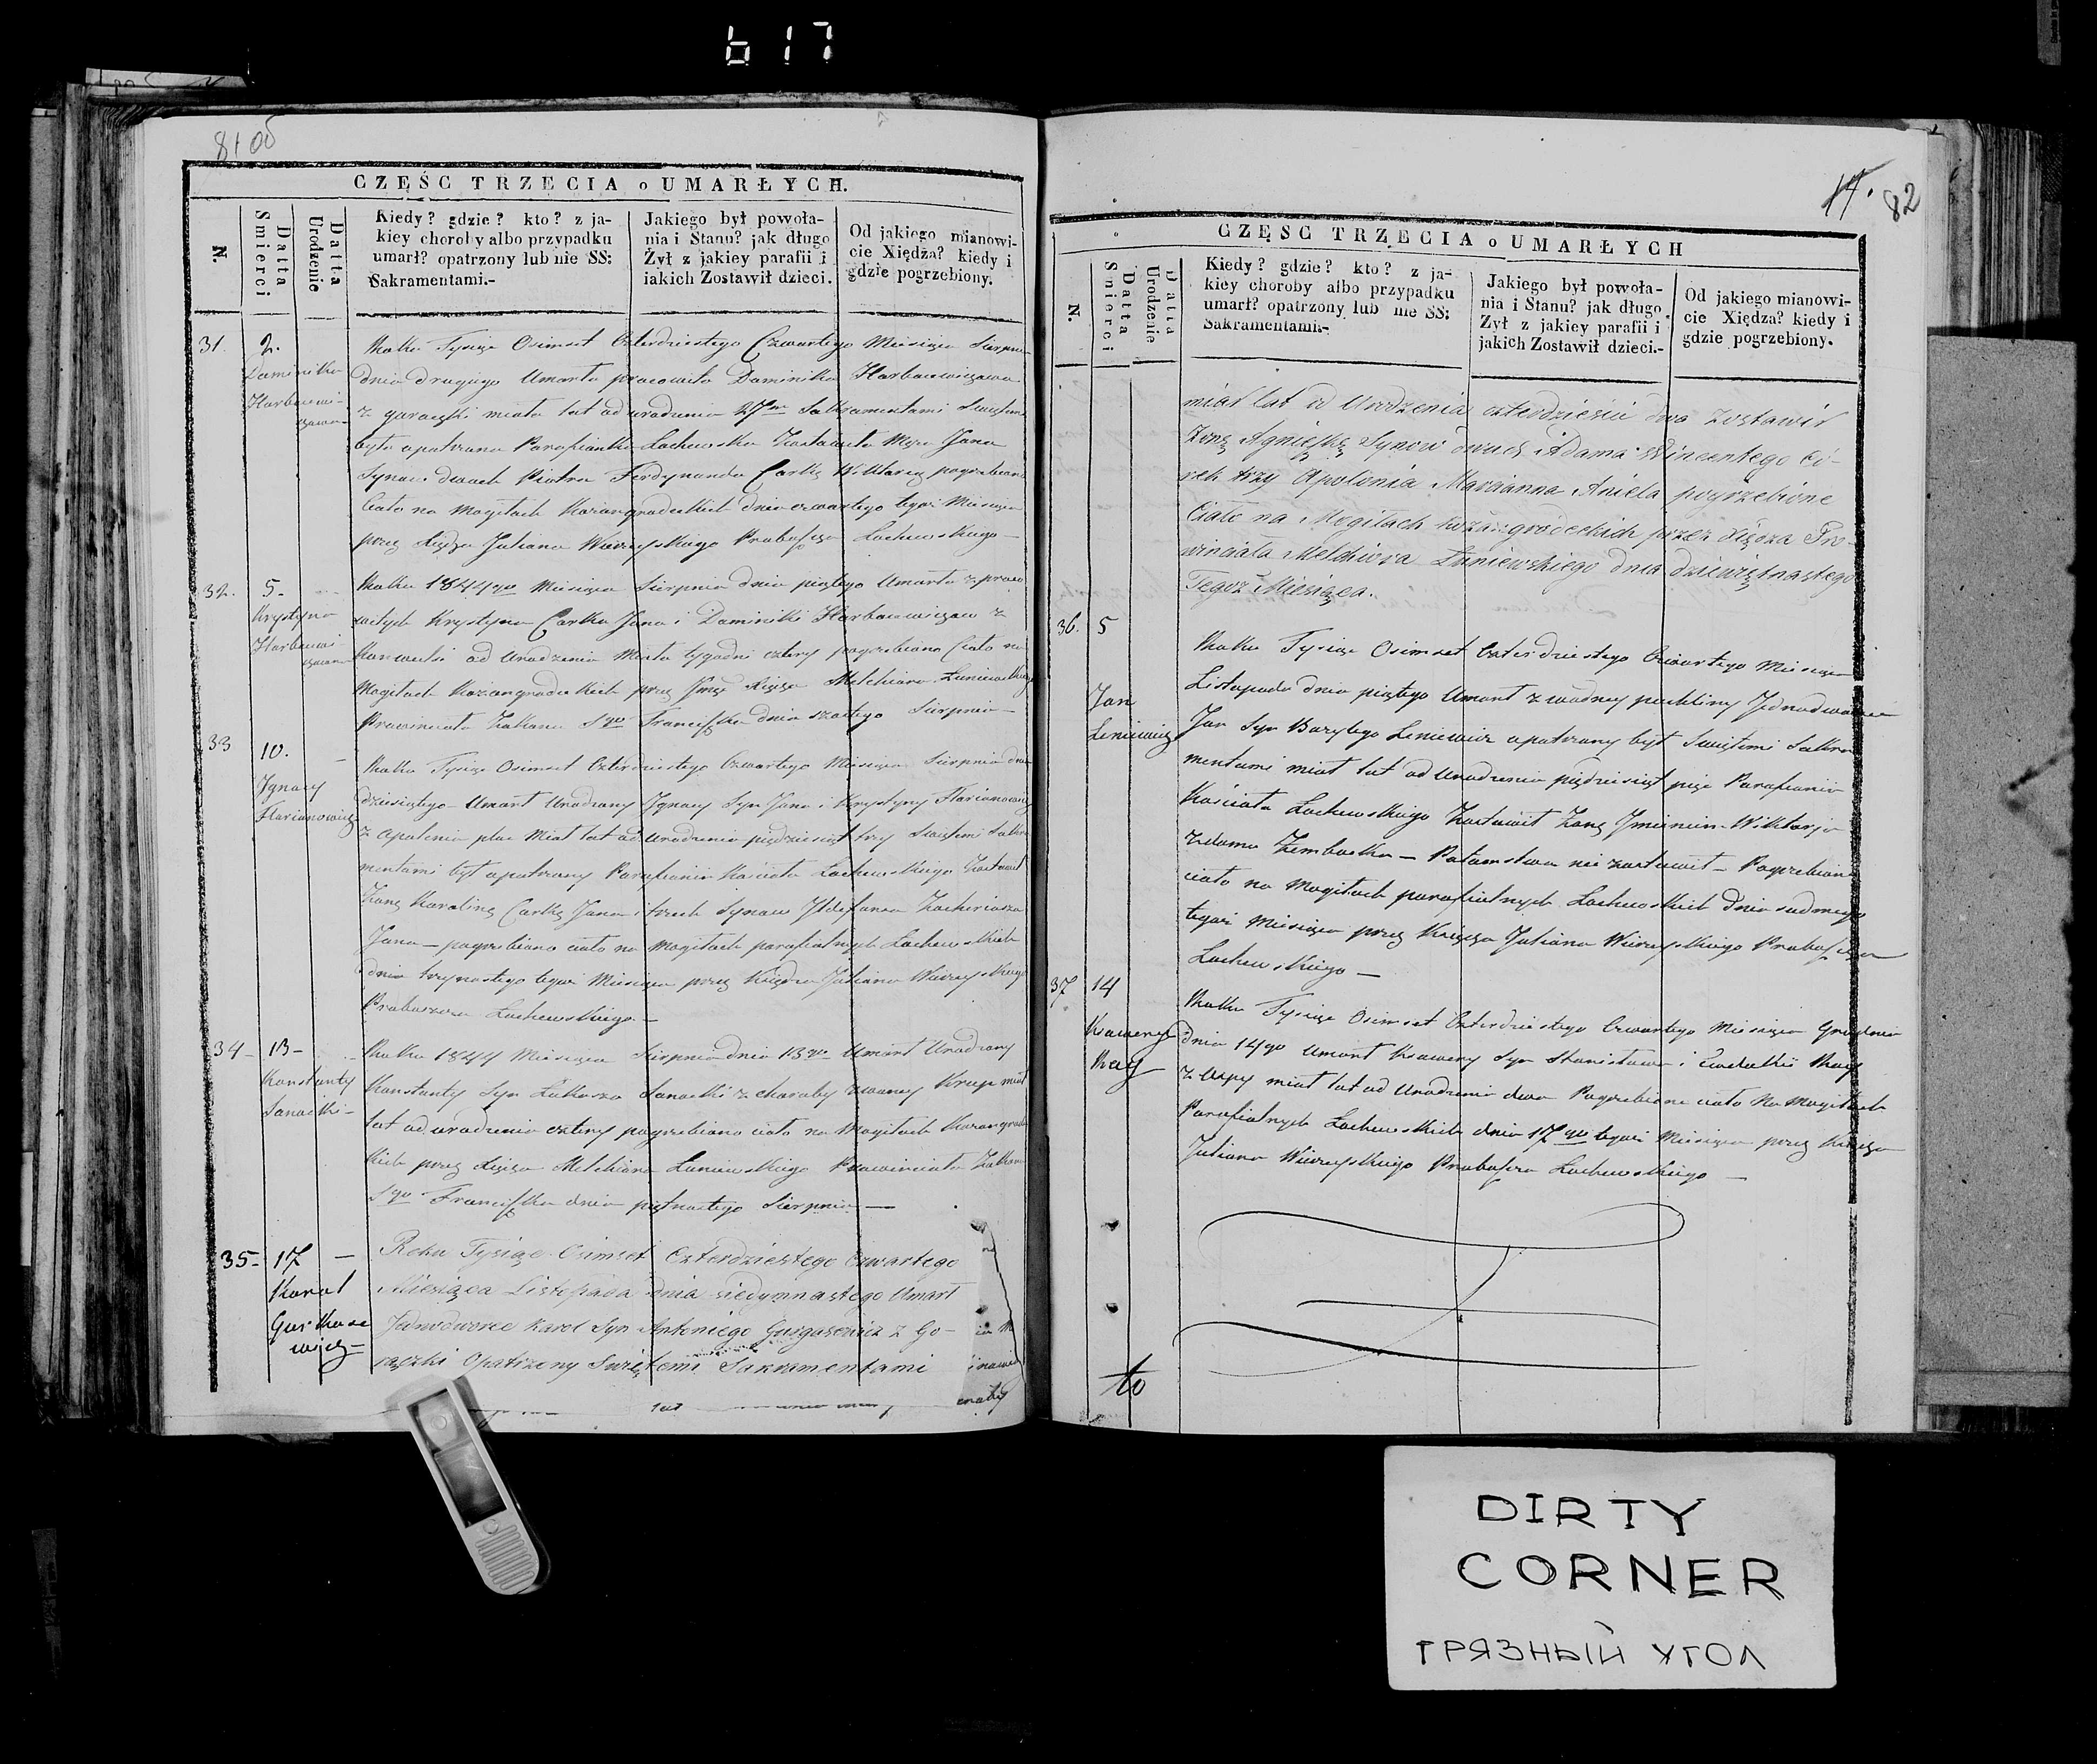 617
81 об
CZĘŚC TRZECIA o UMARŁYCH.
N.
Datta Smierci
Datta Urodzenie
Kiedy? gdzie? kto? z ja-
kiey choroby albo przypadku
umarł? opatrzony lub nie SS:
Sakramentami.-
Jakiego był powoła-
nia i Stanu? jak długo
Żył z jakiey parafii i
iakich Zostawił dzieci.
Od jakiego mianowi-
cie Xiędza? kiedy i
gdzie pogrzebiony.
31. 2.
Dominika
Harbacewi-
czowa
Roku Tysiąc Osimset Czterdziestego Czwartego Miesiąca Sierpnia
dnia drugiego Umarła pracowita Dominika Harbacewiczowa
z goraczki miała lat od urodzenia 27 Sakramentami Swiętemi
była opatrzona Parafianka Łachewska Zostawiła Męża Jana
Synow dwoch Piotra Ferdynanda Corkę Wiktorię pogrzebiono
Ciało na Mogiłach Kożangrodeckich dnia czwartego tegoż Miesiąca
przez Xiędza Juliana Proboszcza Łachewskiego —
32. 5.
Krystyna
Harbacewi
czowna
Roku 1844go Miesiąca Sierpnia dnia piątego Umarła z praco
witych Krystyna Corka Jana i Dominiki Harbacewiczow z
Konwulsi od Urodzenia Miała tygodni cztery pogrzebiono Ciało na
Mogiłach Kożangrodeckich przez Xiędza Melchiora Łuniewskiego
Prowinciała Zakonu Sgo Franciszka dnia szostego Sierpnia —
33 10.
Ignacy
Florianowicz
Roku Tysiąc Osimset Czterdziestego Czwartego Miesiąca Sierpnia dnia
dziesiątego Umarł Urodzony Ignacy Syn Jana i Krystyny Florianowicz
z Miał lat od Urodzenia piędziesiąt trzy Swiętemi Sakra
mentami był opatrzony Parafianin Kościoła Łachewskiego Zostawił
Żonę Karolinę Corkę i trzech Synow Ildefonsa Zacheriasza
Jana — pogrzebiono ciało na Mogiłach parafialnych Łachewskich
dnia trzynastego tegoż Miesiąca przez Xiędza Juliana
Proboszcza Łachewskiego —
34 - 13 -
Konstanty
Sanocki -
Roku 1844 Miesiąca Sierpnia dnia 13go Umarł Urodzony
Konstanty Syn Łukasza Sanocki z choroby zwaney Krup miał
lat od urodzenia cztery pogrzebiono ciało na Mogiłach Kożangrodec
kich przez Xiędza Melchiora Łuniewskiego Prowinciała Zakonu
Sgo Franciszka dnia piętnastego Sierpnia —
35 - 17 —
Karol
Roku Tysiąc Osimset Czterdziestego Czwartego
Miesiąca Listopada dnia siedymnastego Umarł
Jednodworec Karol Syn Antoniego z Go-
rączki Opatrzony Swiętemi Sakramentami
14. 82
CZĘSC TRZECIA o UMARŁYCH
N.
Datta Smierci
Datta Urodzenie
Kiedy? gdzie? kto? z ja-
kiey choroby albo przypadku
umarł? opatrzony lub nie SS:
Sakramentami.-
Jakiego był powoła-
nia i Stanu? jak długo
Żył z jakiey parafii i
jakich Zostawił dzieci.-
Od jakiego mianowi-
cie Xiędza? kiedy i
gdzie pogrzebiony.
miał lat od Urodzenia czterdzieście dwa zostawił
Żonę Agnieszkę Synow dwuch Adama Wincentego Có-
rek trzy Apolonia Marcianna Aniela pogrzebione
Ciało na Mogiłach Kożangrodeckich przez Xiędza Pro-
winciała Melchiora Łuniewskiego dnia dziewiętnastego
Tegoż Miesiąca.
36. 5
Jan
Leniewicz
Roku Tysiąc Osimset Czterdziestego Czwartego Miesiąca
Listopada dnia piątego Umarł z wodney puchliny Jednodworzec
Jan Syn Bazylego Leniewicz opatrzony był Swiętemi Sakra
mentami miał lat od Urodzenia piędziesiąt pięć Parafianin
Kościoła Łachewskiego Zostawił Żonę Imieniem Wiktorja
Zdomu — Potomstwa nie zostawił — Pogrzebiono
ciało na Mogiłach parafialnych Łachewskich dnia siodmego
tegoż Miesiąca przez Xiędza Juliana Proboszcza
Łachewskiego —
37 14
Ksawery
Roku Tysiąc Osimset Czterdziestego Czwartego Miesiąca Grudnia
dnia 14go Umarł Ksawery Syn Stanisława i
z Ospy miał lat od Urodzenia dwa Pogrzebione ciało Na Mogiłach
Parafialnych Łachewskich dnia 17go tegoż Miesiąca przez Xiędza
Juliana Proboszcza Łachewskiego —
DIRTY
CORNER
ГРЯЗНЫЙ УГОЛ